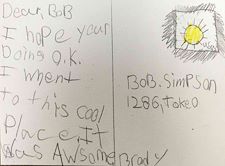 Dear, BoB
I hope your
Doing O.K.
I whent
to this cool
Place It
was Awsome Brady
BoB. Simpson
1286, Tokeo